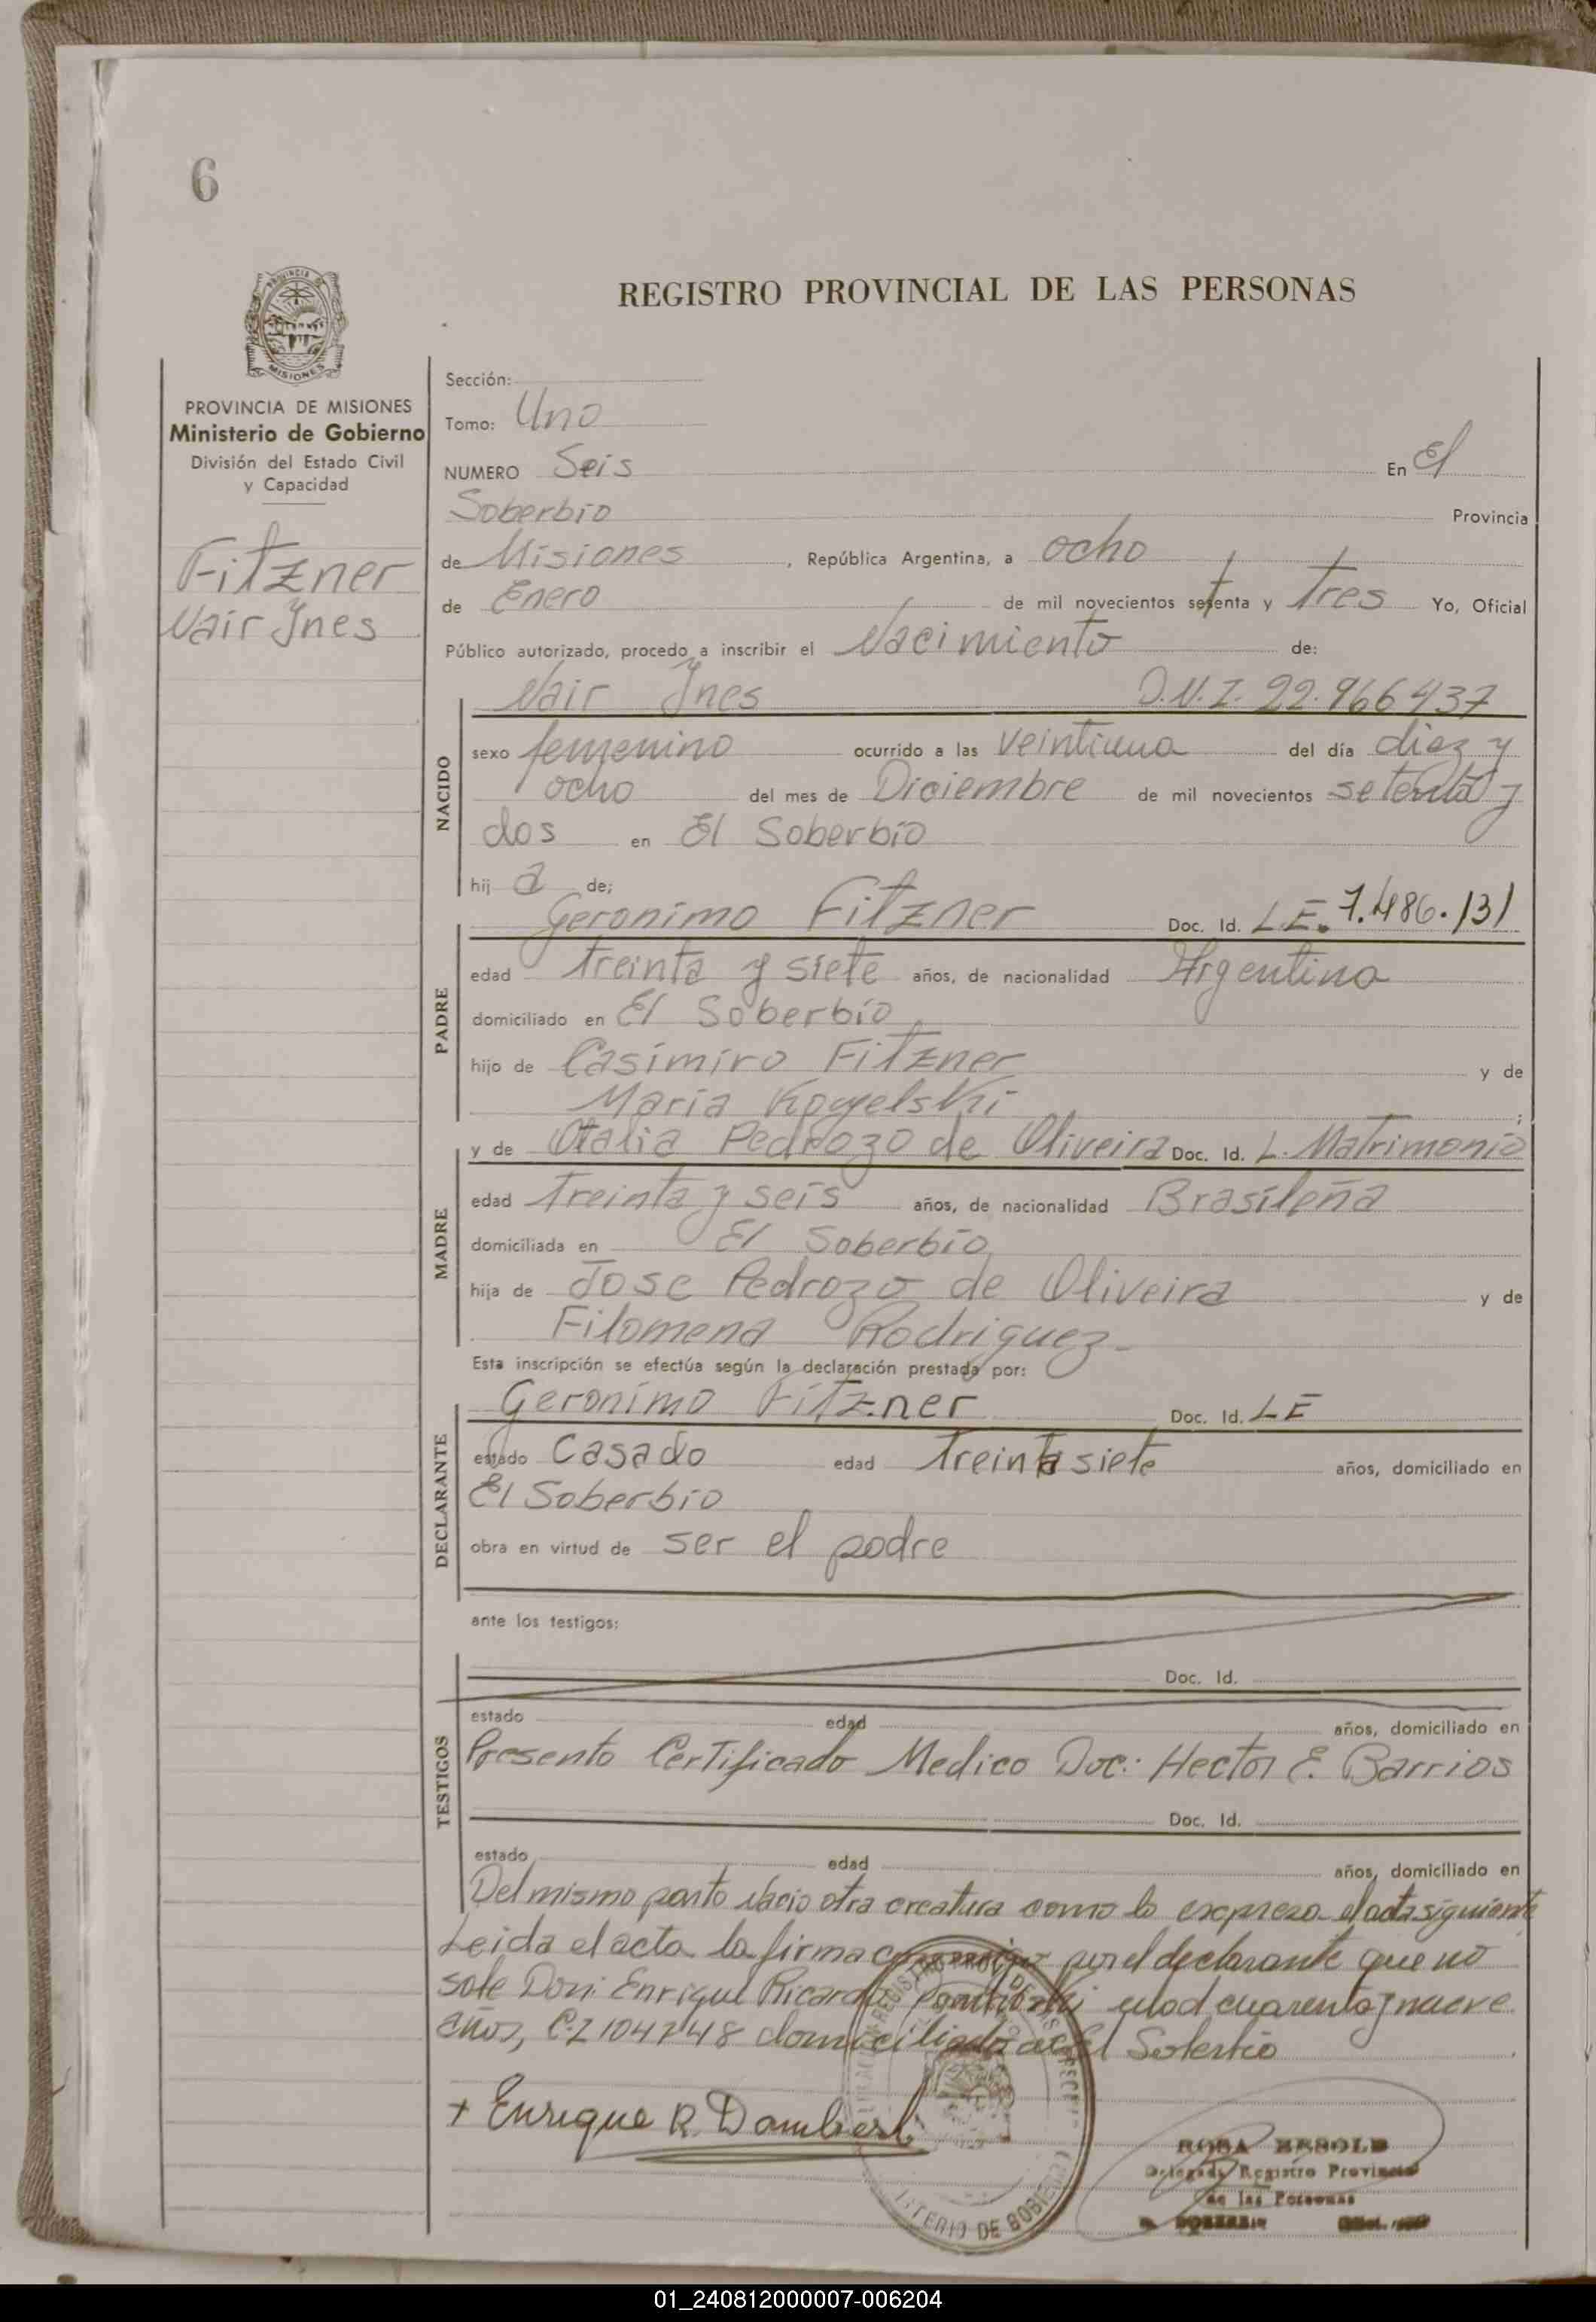 6
REGISTRO PROVINCIAL DE LAS PERSONAS
PROVINCIA DE MISIONES
Ministerio de Gobierno
División del Estado Civil
y Capacidad
Fitzner
Nair Ynes
Sección:
Tomo: Uno
NUMERO Seis En El
Soberbio Provincia
de Misiones, República Argentina, a ocho
de Enero de mil novecientos setenta y tres Yo, Oficial
Público autorizado, procedo a inscribir el Nacimiento de:
Nair Ynes D.N.I. 22.966437
NACIDO
sexo femenino ocurrido a las veintiuna del día diez y
ocho del mes de Diciembre de mil novecientos setenta y
dos en El Soberbio
hij a de;
Geronimo Fitzner Doc. Id. LE. 7.486.131
PADRE
edad treinta y siete años, de nacionalidad Argentina
domiciliado en El Soberbio
hijo de Casimiro Fitzner y de
Maria ;
y de Otalia Pedrozo de Oliveira Doc. Id. L. Matrimonio
MADRE
edad treinta y seis años, de nacionalidad Brasileña
domiciliada en El Soberbio
hija de Jose Pedrozo de Oliveira y de
Filomena Rodriguez
Esta inscripción se efectúa según la declaración prestada por:
Geronimo Fitzner Doc. Id. LE
DECLARANTE
estado Casado edad Treinta siete años, domiciliado en
El Soberbio
obra en virtud de ser el padre
ante los testigos:
Doc. Id.
TESTIGOS
estado edad años, domiciliado en
Presento Certificado Medico Doc: Hector E. Barrios
Doc. Id.
estado edad años, domiciliado en
Del mismo parto Nacio otra creatura como lo expreza el acta siguiente
Leida el acta la firma por el declarante que no
Don: Enrique Ricardo cuarenta y nueve
años, domiciliado Soberbio
+ Enrique R.
MINISTERIO DE GOBIERNO
ROSA
Delegada Registro Provincial
de las Personas
01_240812000007-006204